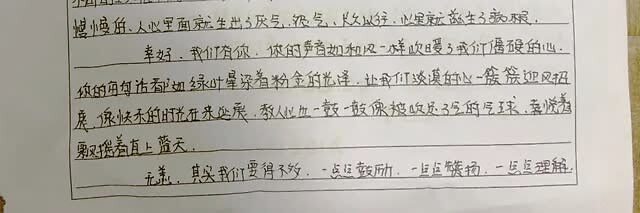 慢慢的、人心里面就生出了厌气、怨气，长久以往，心里就敌生了病根。
幸好，我们有你，你的声音如和风一样吹暖了我们僵硬的心。
你的每句话都如绿叶星深着粉金的光泽，让我们淡漠的心一簇簇迎风招
展，像快乐的时光在来延展，教人心也一鼓一鼓像被吹足了气的气球，喜悦着
飘摇着直上蓝天。
无恙，其实我们要得不多，一点点鼓励，一点点赞扬，一点点理解.